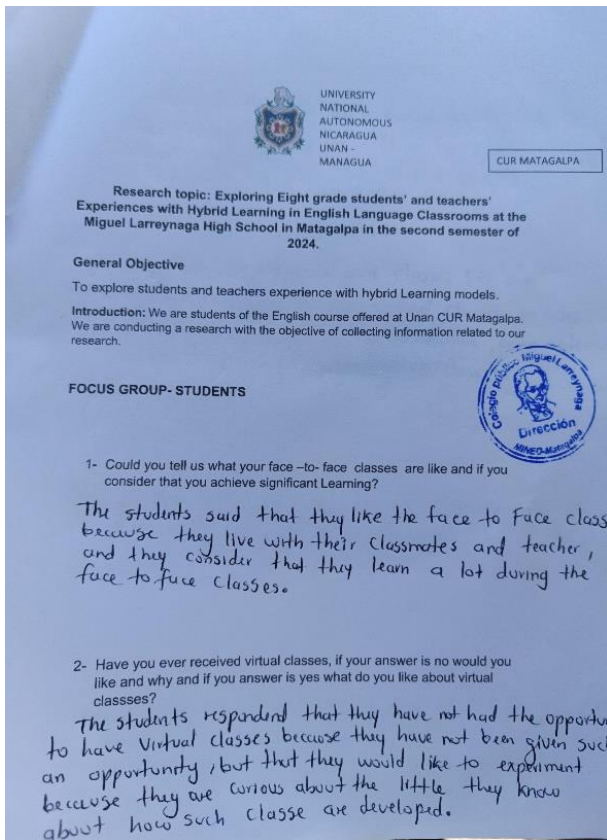 UNIVERSITY
NATIONAL
AUTONOMOUS
NICARAGUA
UNAN -
MANAGUA
CUR MATAGALPA
Research topic: Exploring Eight grade students' and teachers'
Experiences with Hybrid Learning in English Language Classrooms at the
Miguel Larreynaga High School in Matagalpa in the second semester of
2024.
General Objective
To explore students and teachers experience with hybrid Learning models.
Introduction: We are students of the English course offered at Unan CUR Matagalpa.
We are conducting a research with the objective of collecting information related to our
research.
Colegio público Miguel Larreynaga
Dirección
MINED-Matagalpa
FOCUS GROUP- STUDENTS
1- Could you tell us what your face –to- face classes are like and if you
consider that you achieve significant Learning?
The students said that they like the face to Face class
because they live with their classmates and teacher,
and they consider that they learn a lot during the
face to face classes.
2- Have you ever received virtual classes, if your answer is no would you
like and why and if you answer is yes what do you like about virtual
classses?
The students respondend that they have not had the opportu
to have Virtual classes because they have not been given suc
an opportunity, but that they would like to experiment
because they are curious about the little they know
about how such classe are developed.